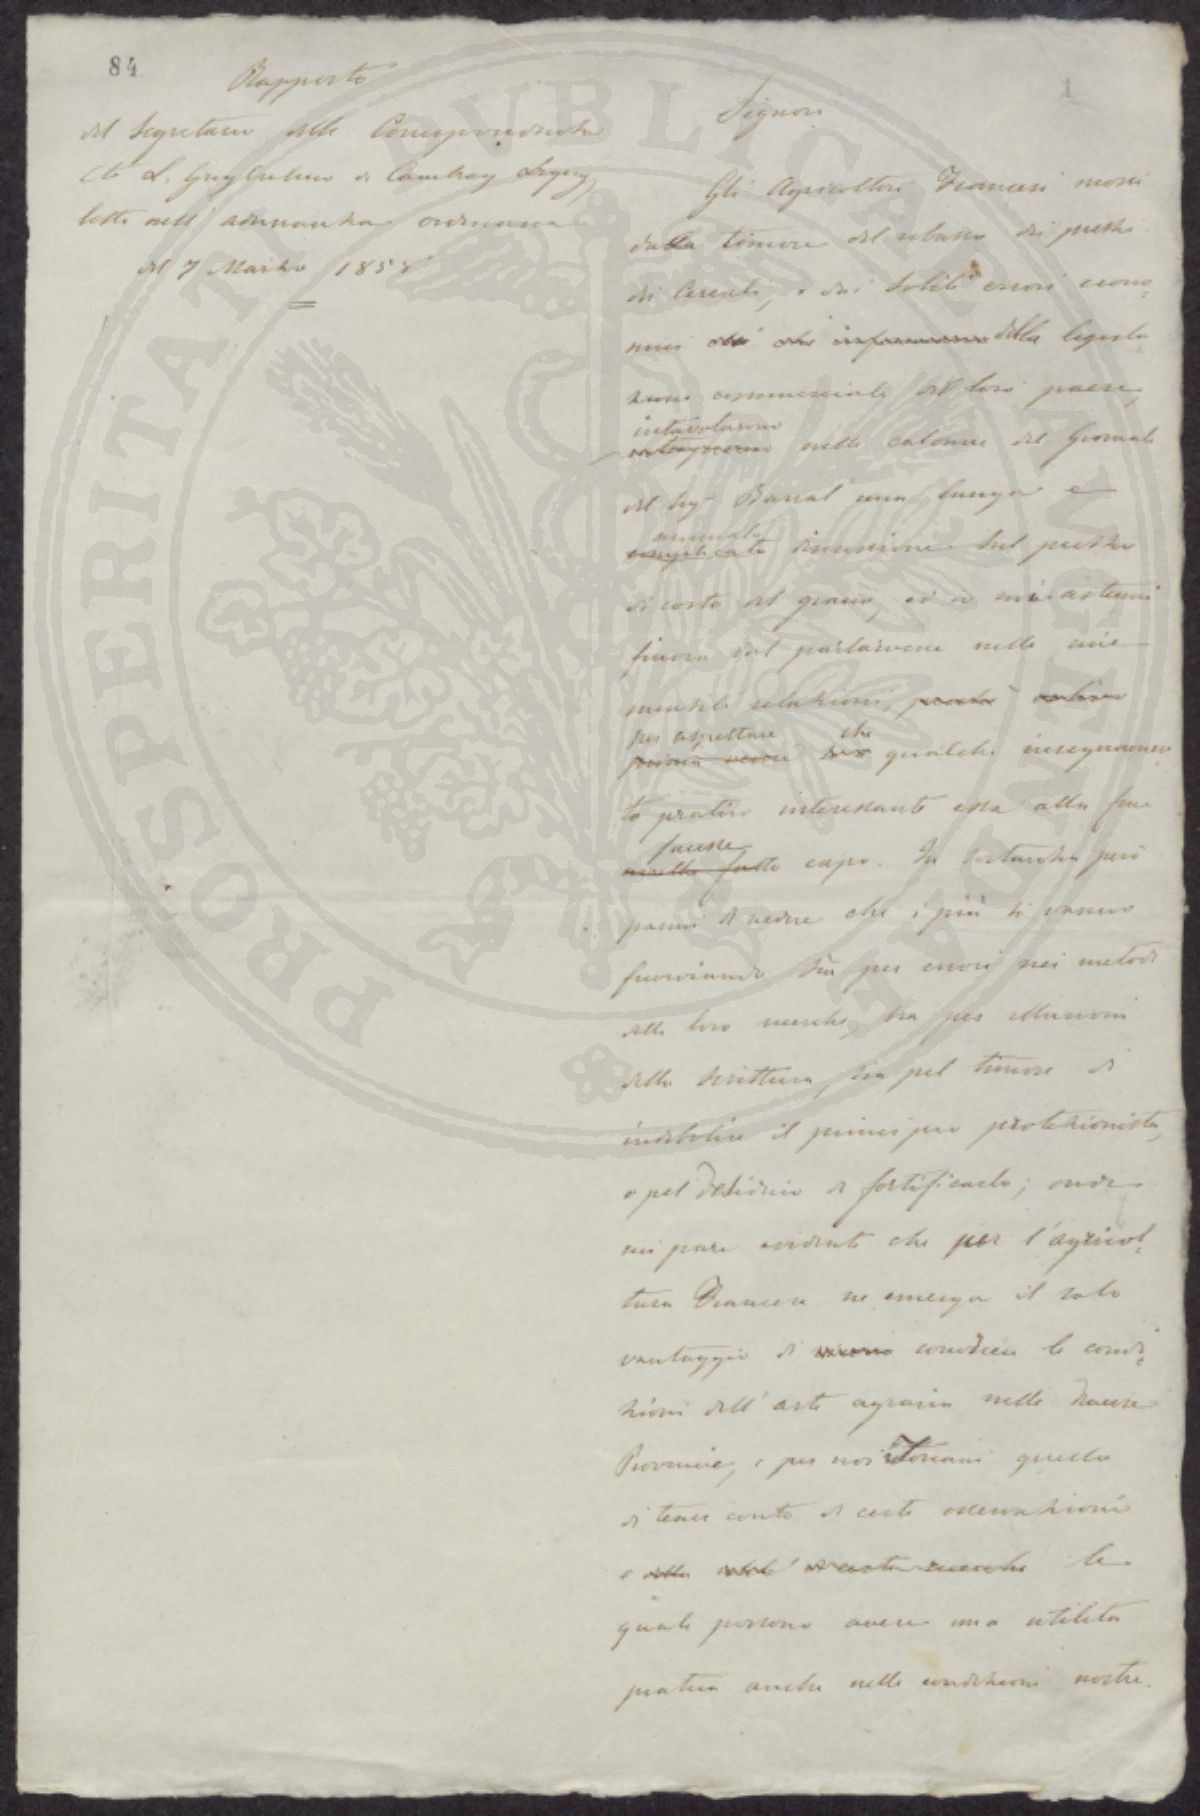 84
1
Rapporto
del Segretario delle Corrispondenze
Cte L. Guglielmo de Cambray Digny,
letto nell' adunanza ordinaria
del 7 Marzo 1858
Signori
Gli Agricoltori Francesi mossi
dalla timore del ribasso dei prezzi
di Cereali, e dai soliti errori econo-
mici che informano della legisla
zione commerciale del loro paese,
intavolarono
nelle colonne del Giornale
del Sigr Barral una lunga e
animata
complicata discussione sul prezzo
di costo del grano, ed io mi astenni
finora dal parlarvene nelle mie
mensili relazioni,
per aspettare che
prima vedere se qualche insegnamen
to pratico interessante essa alla fine
facesse
avesse fatto capo. In sostanza però
parmi di vedere che i più si vanno
fuorviando sia per errori nei metodi
delle loro ricerche, sia per illusioni
della scrittura, sia pel timore di
indebolire il principio protezionista,
o pel desiderio di fortificarlo; onde
mi pare evidente che per l'agricol-
tura Francese ne emerga il solo
vantaggio di conoscere le condi-
zioni dell' arte agraria nelle diverse
Provincie, e per noi Toscani quello
di tener conto di certe osservazioni
e delle le
quali possono avere una utilità
pratica anche nelle condizioni nostre.
PROSPERITATI PVBLICAE AVGENDAE